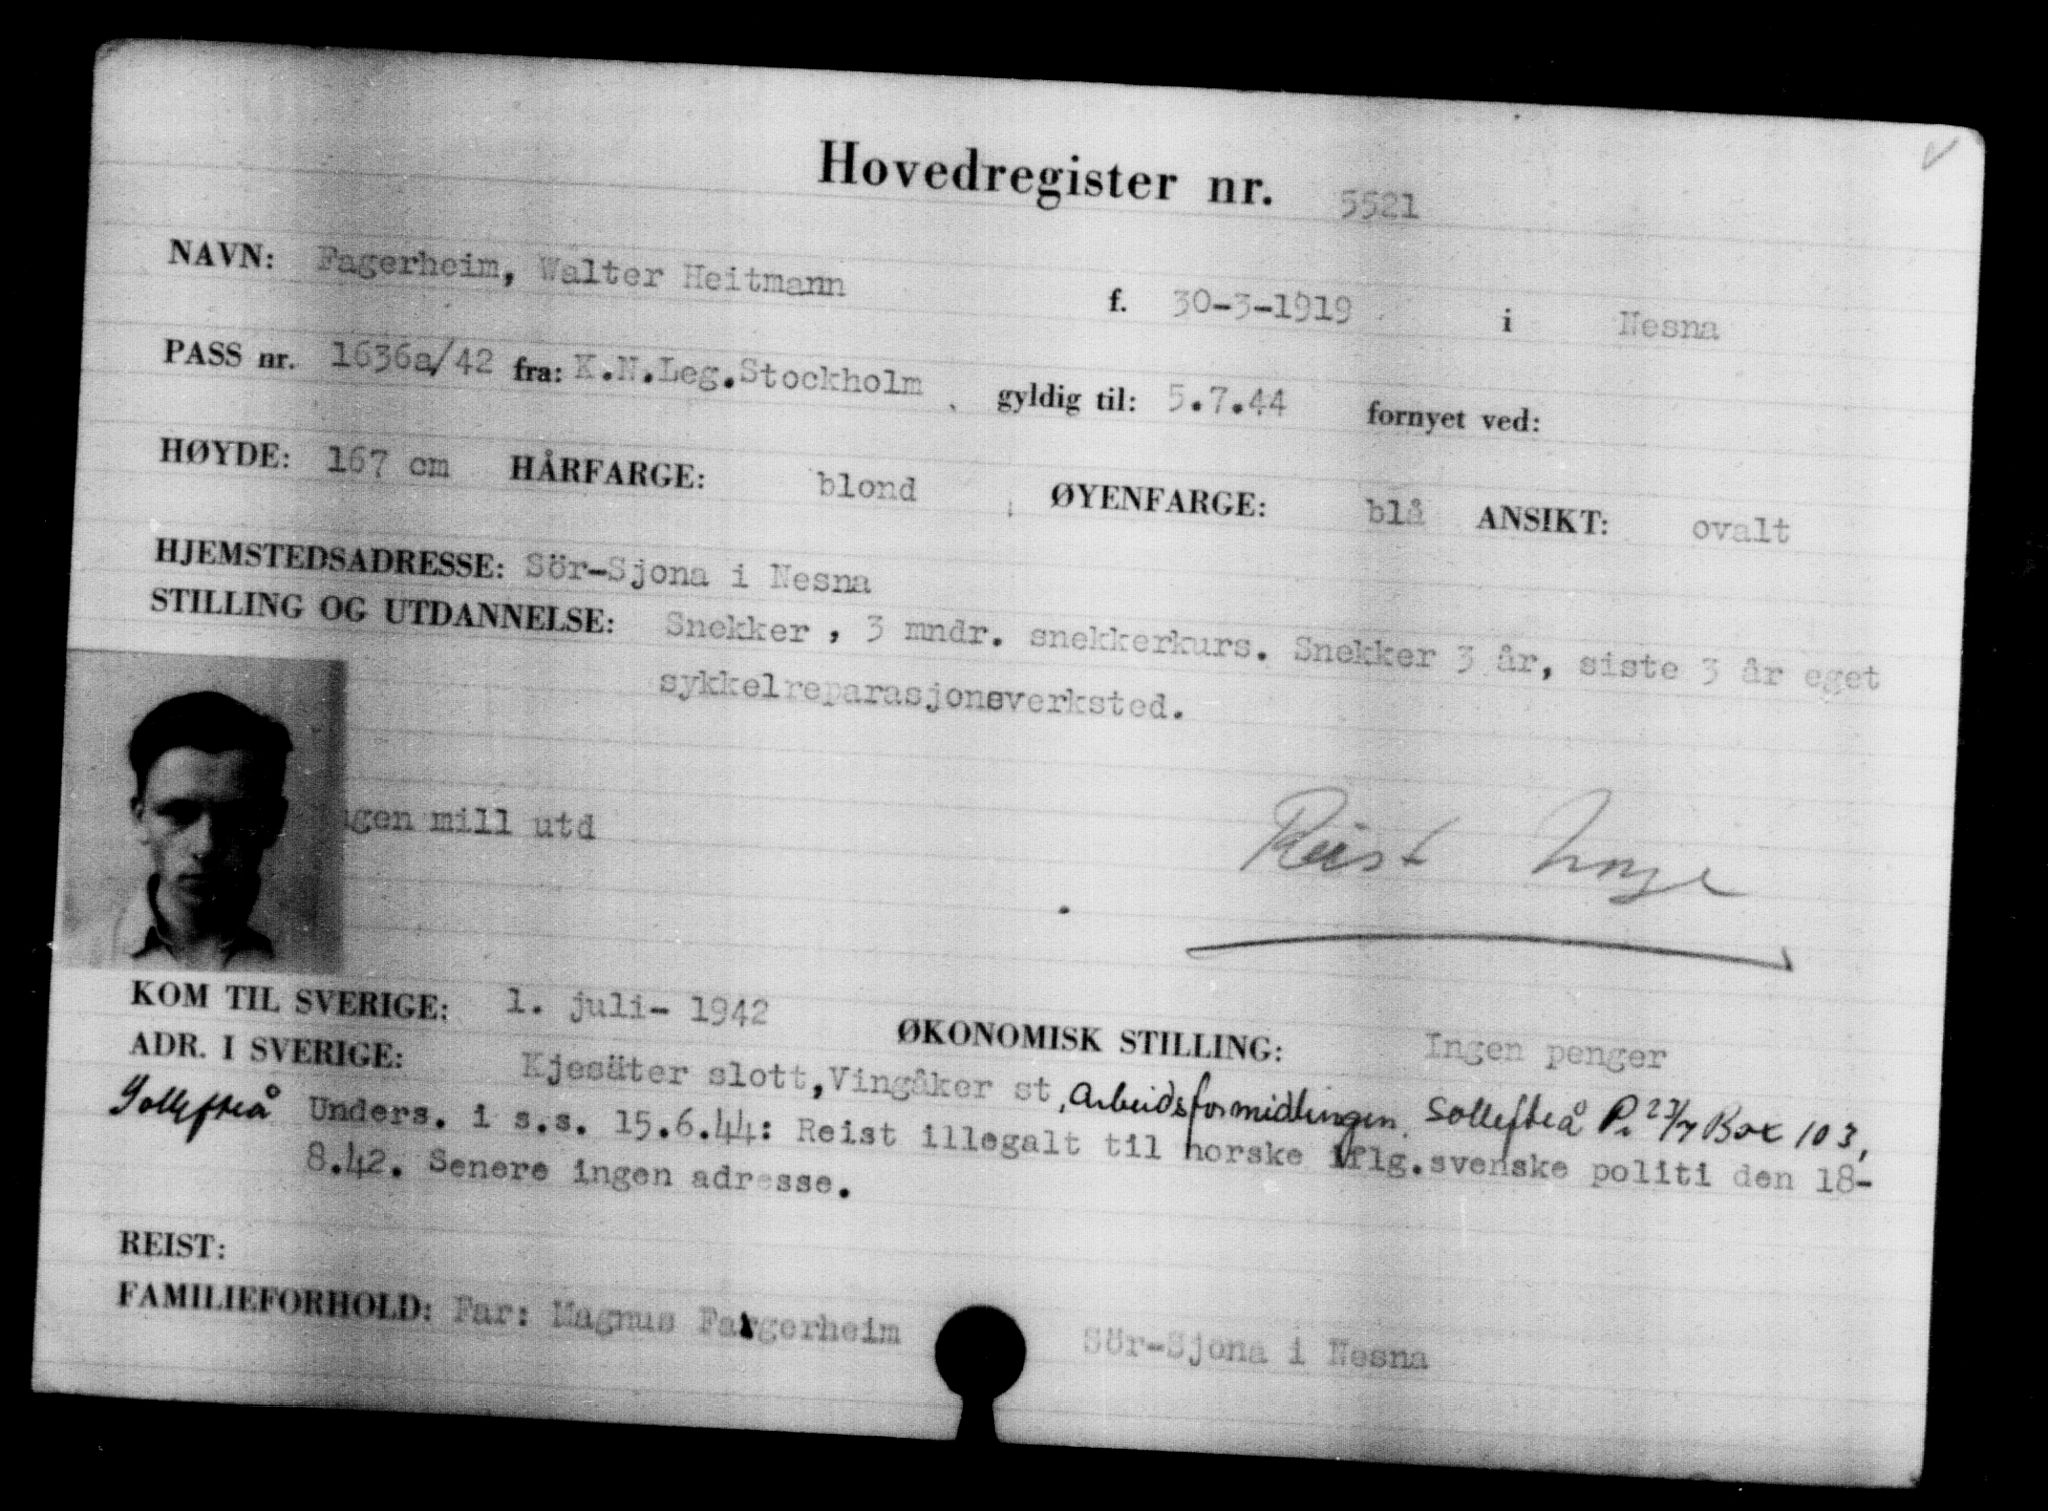 Hovedregister nr. 5521
NAVN: Fagerheim, Walter Heitmann f. 30-3-1919 i Nesna
PASS nr. 1636a/42 fra: K.N.Leg.Stockholm gyldig til: 5.7.44 fornyet ved:
HØYDE: 167 cm HÅRFARGE: blond ØYENFARGE: blå ANSIKT: ovalt
HJEMSTEDSADRESSE: Sör-Sjona i Nesna
STILLING OG UTDANNELSE: Snekker, 3 mndr. snekkerkurs. Snekker 3 år, siste 3 år eget
sykkelreparasjonsverksted.
ngen mill utd
Reist Norge
KOM TIL SVERIGE: 1. juli- 1942 ØKONOMISK STILLING: Ingen penger
ADR. I SVERIGE: Kjesäter slott, Vingåker st, Arbeidsformidlingen. Sollefteå P. 23/7 Box 103,
Sollefteå Unders. i s.s. 15.6.44: Reist illegalt til norske iflg.svenske politi den 18-
8.42. Senere ingen adresse.
REIST:
FAMILIEFORHOLD: Far: Magnus Fargerheim Sör-Sjona i Nesna